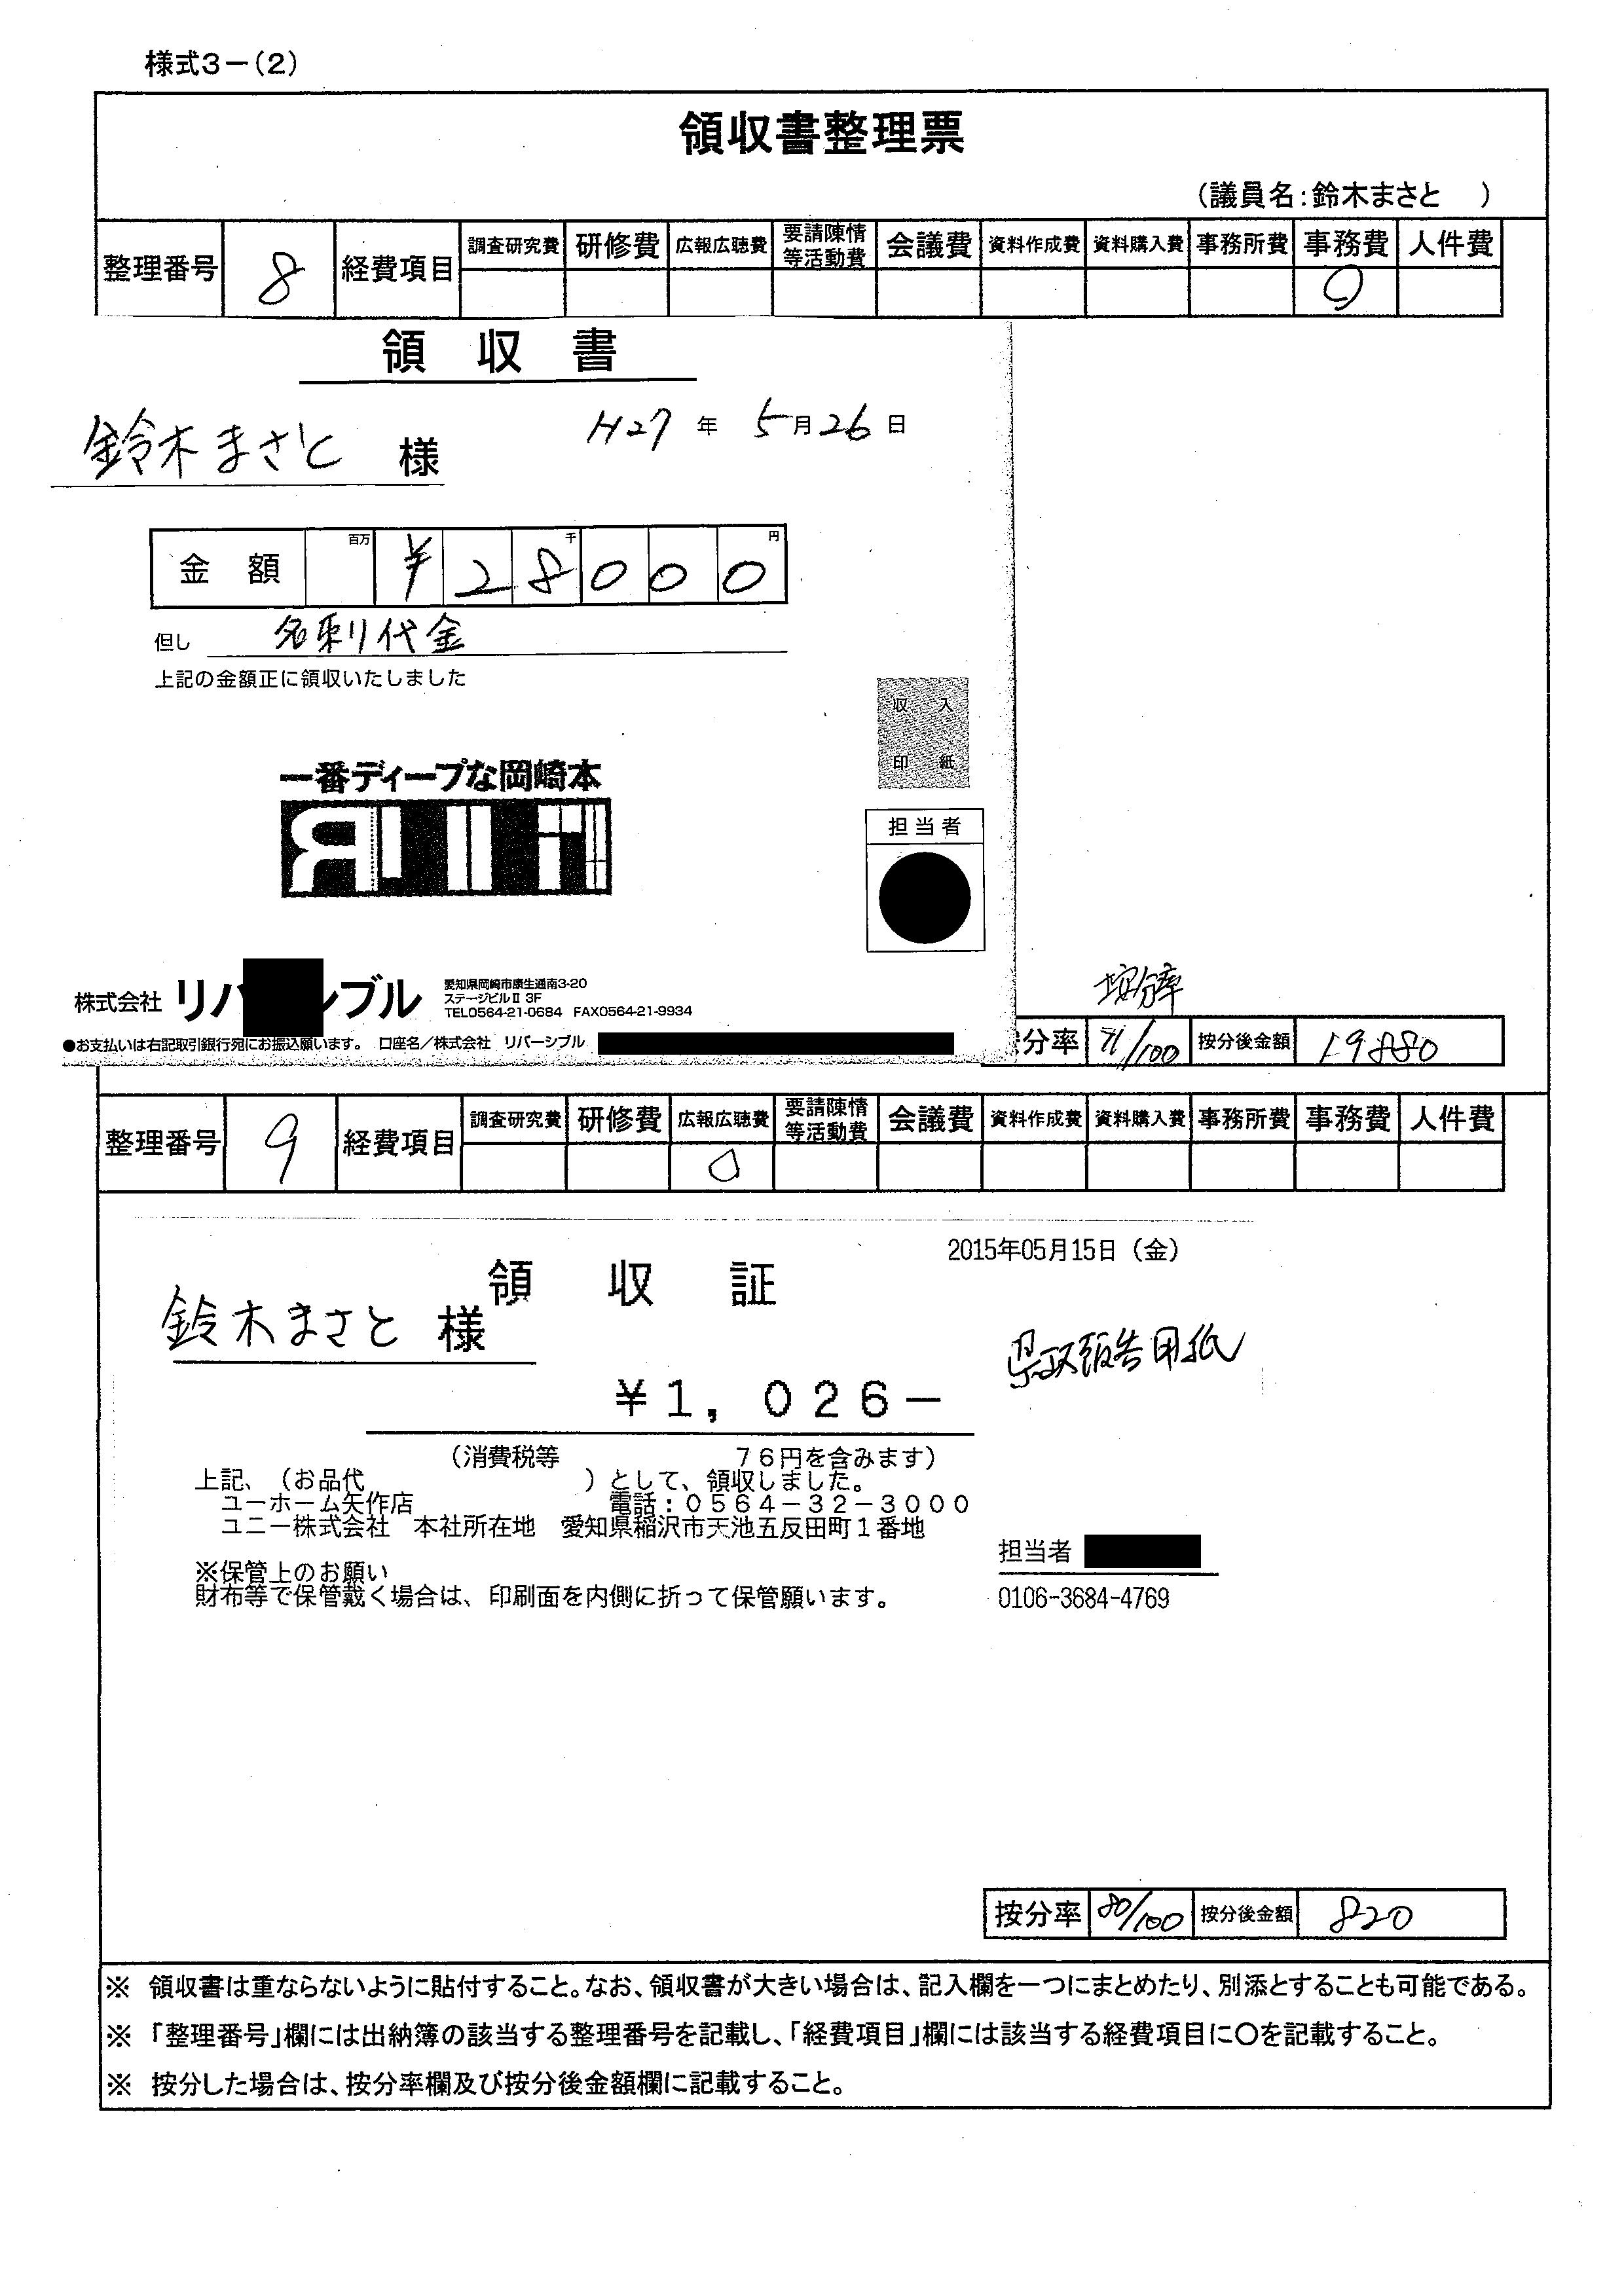 様式3－(2)
領収書整理票
(議員名:鈴木まさと )
整理番号 8 経費項目 調査研究費 研修費 広報広聴費 要請陳情等活動費 会議費 資料作成費 資料購入費 事務所費 事務費 人件費
○
領 収 書
鈴木まさと 様
H27 年 5月26日
金 額 百万 千 円
¥28000
但し 名刺代金
上記の金額正に領収いたしました
収 入
印 紙
一番ディープな岡崎本
担当者
株式会社 リバ シブル
愛知県岡崎市康生通南3-20
ステージビルⅡ 3F
TEL0564-21-0684 FAX0564-21-9934
●お支払いは右記取引銀行宛にお振込願います。 口座名/株式会社 リバーシブル
按分率
分率 71/100 按分後金額 19880
整理番号 9 経費項目 調査研究費 研修費 広報広聴費 要請陳情等活動費 会議費 資料作成費 資料購入費 事務所費 事務費 人件費
○
2015年05月15日(金)
領 収 証
鈴木まさと 様
県政報告用紙
¥1,026－
(消費税等 76円を含みます)
上記、(お品代 )として、領収しました。
ユーホーム矢作店 電話:0564－32－3000
ユニー株式会社 本社所在地 愛知県稲沢市天池五反田町1番地
担当者
※保管上のお願い
財布等で保管戴く場合は、印刷面を内側に折って保管願います。
0106-3684-4769
按分率 80/100 按分後金額 820
※ 領収書は重ならないように貼付すること。なお、領収書が大きい場合は、記入欄を一つにまとめたり、別添とすることも可能である。
※ 「整理番号」欄には出納簿の該当する整理番号を記載し、「経費項目」欄には該当する経費項目に○を記載すること。
※ 按分した場合は、按分率欄及び按分後金額欄に記載すること。